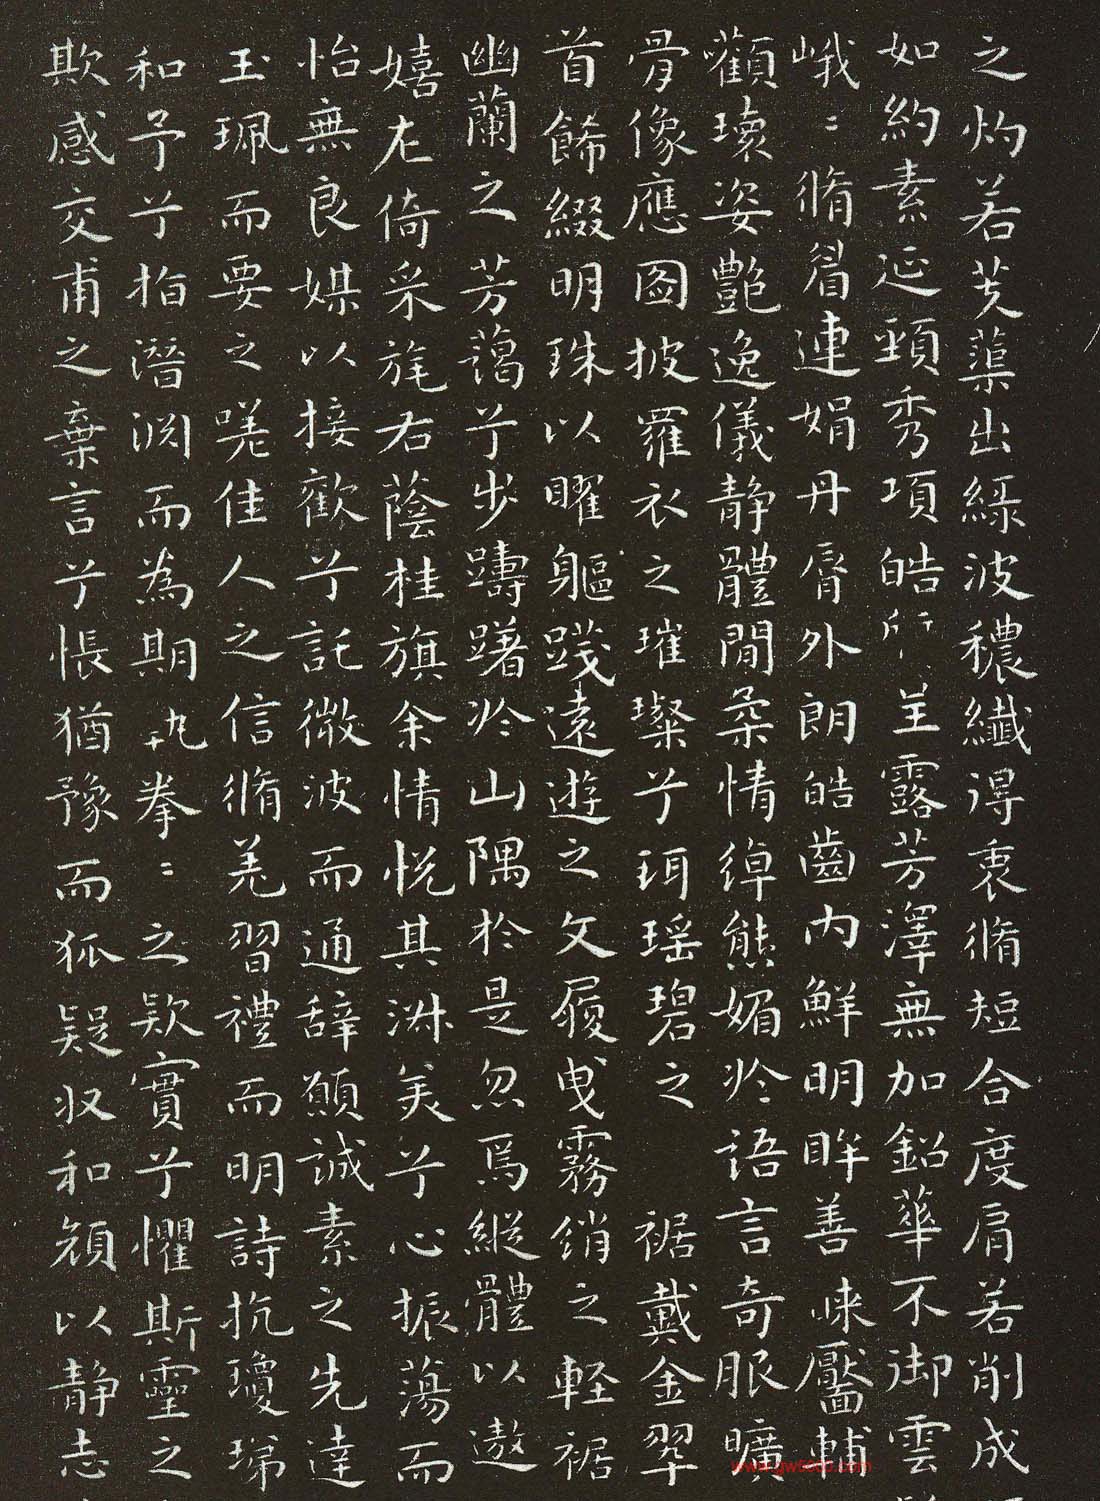 之灼若芙蕖出綠波穠纖得衷脩短合度肩若削成
如約素延頸秀項皓呈露芳澤無加鉛華不御雲
峨〻脩眉連娟丹脣外朗皓齒內鮮明眸善睞靨輔
顴瓌姿艷逸儀靜體閒柔情綽態媚於語言奇服曠
骨像應圖披羅衣之璀璨兮珥瑶碧之裾戴金翠
首餙綴明珠以曜軀踐遠遊之文履曳霧綃之軽裾
幽蘭之芳藹兮步躊躇於山隅於是忽焉縱體以遨
嬉左倚采旄右蔭桂旗余情悅其淑美兮心振蕩而
怡無良媒以接歡兮託微波而通辞願誠素之先達
玉珮而要之嗟佳人之信脩羌習禮而明詩抗瓊珶
和予兮指潛渕而為期執拳〻之欵實兮懼斯靈之
欺感交甫之棄言兮悵猶豫而狐疑収和顔以靜志